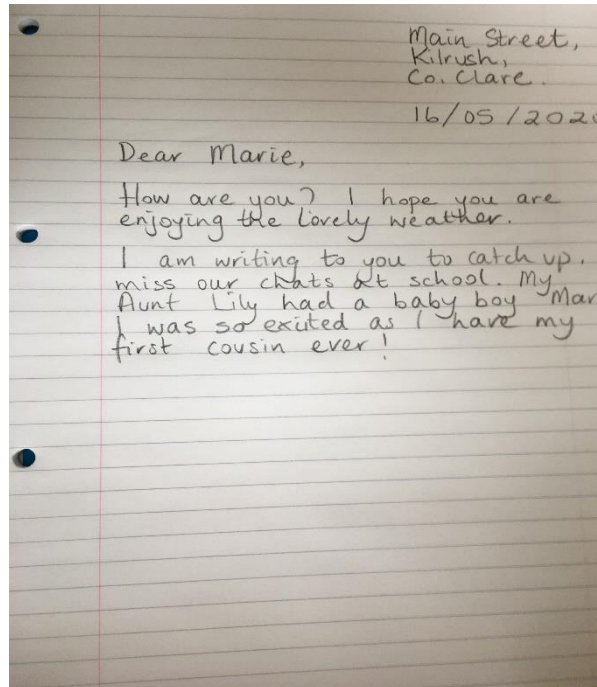 Main Street,
Kilrush,
Co. Clare.
16/05/202
Dear Marie,
How are you? I hope you are
enjoying the lovely weather.
I am writing to you to catch up.
miss our chats at school. My
Aunt Lily had a baby boy
I was so exited as I have my
first cousin ever!